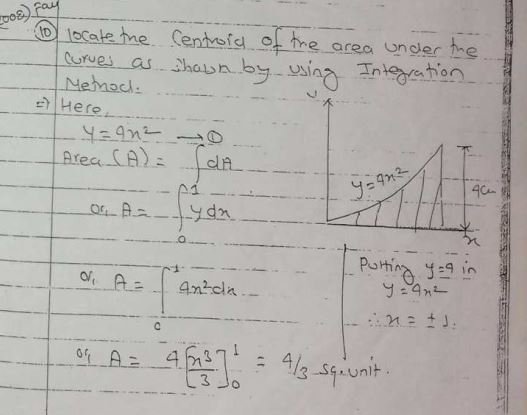 2008) Fay
10 locate the Centroid of the area under the
Curves as shown by using Integration
Method.
=) Here,
y = 4x² → ①
Area (A) = ∫dA
or, A = ∫₀¹ y dx
or, A = ∫₀¹ 4x² dx
or, A = 4 [x³/3]₀¹ = 4/3 sq.unit.
y
y = 4x²
4cm
x
Putting y = 4 in
y = 4x²
∴ x = ± 1.